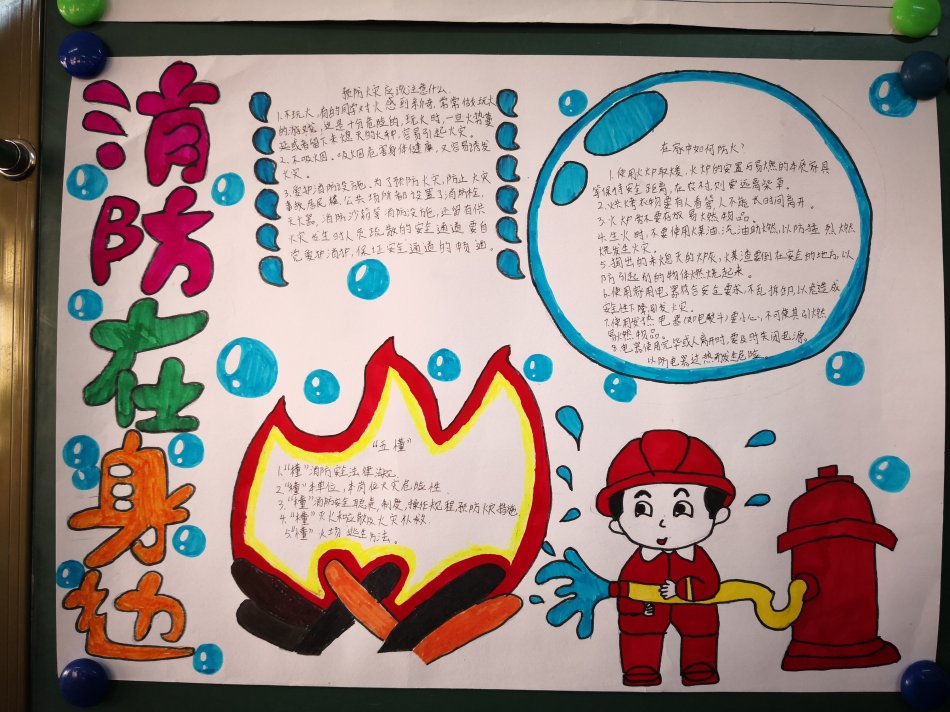 消防在身边
预防火灾应该注意什么
1.不玩火。有的同学对火感到新奇，常常做玩火
的游戏，这是十分危险的，玩火时，一旦火势蔓
延或者留下未熄灭的火种，容易引起火灾。
2.不吸烟。吸烟危害身体健康，又容易诱发
火灾。
3.爱护消防设施。为了预防火灾，防止火灾
事故，居民楼、公共场所都设置了消防栓、
灭火器、消防沙箱等消防设施，还留有供
火灾发生时人员疏散的安全通道，要自
觉爱护消护，保证安全通道的畅通。
在家中如何防火？
1.使用火炉取暖，火炉的安置应与易燃的木质家具
等保持安全距离，在农村则要远离柴草。
2.火烤衣物要有人看管，人不能长时间离开。
3.火炉旁不要存放易燃物品。
4.生火时，不要使用煤油、汽油助燃，以防猛烈燃
烧发生火灾。
5.掏出的未熄灭的火灰、煤渣要倒在安全的地方，以
防引起别的物体燃烧起来。
6.使用家用电器符合安全要求，不乱拆卸，以免造成
安全性下降，引发火灾。
7.使用发热电器(如电熨斗)要小心，不可使其引燃
易燃物品。
8.电器使用完毕或人离开时，要及时关闭电源。
以防电器过热而发生危险。
“五懂”
1.“懂”消防安全法律法规
2.“懂”本单位，本岗位火灾危险性
3.“懂”消防安全职责，制度，操作规程，预防火灾措施
4.“懂”灭火和应急及火灾扑救
5.“懂”火场逃生方法。